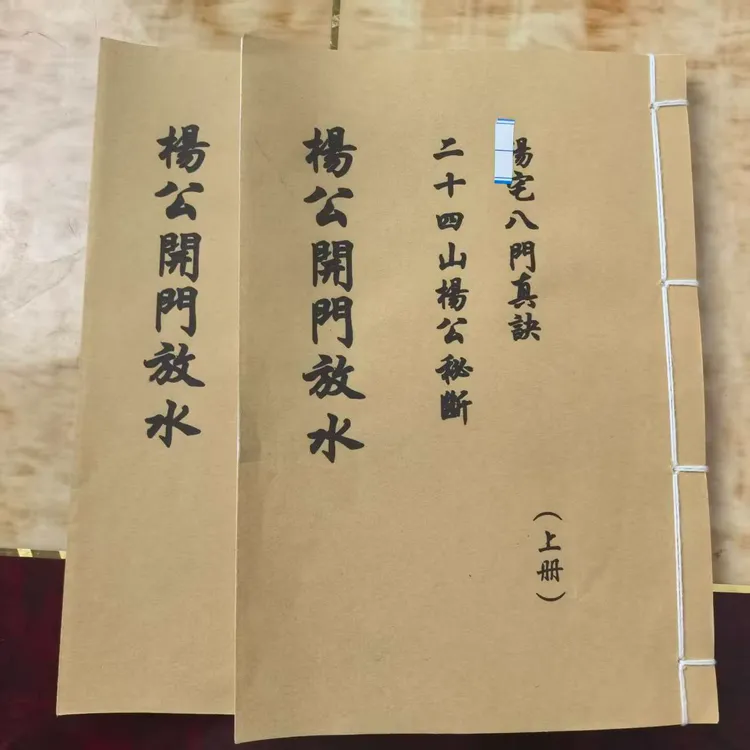 陽宅八門真訣
二十四山楊公秘斷
(上册)
楊公開門放水
楊公開門放水